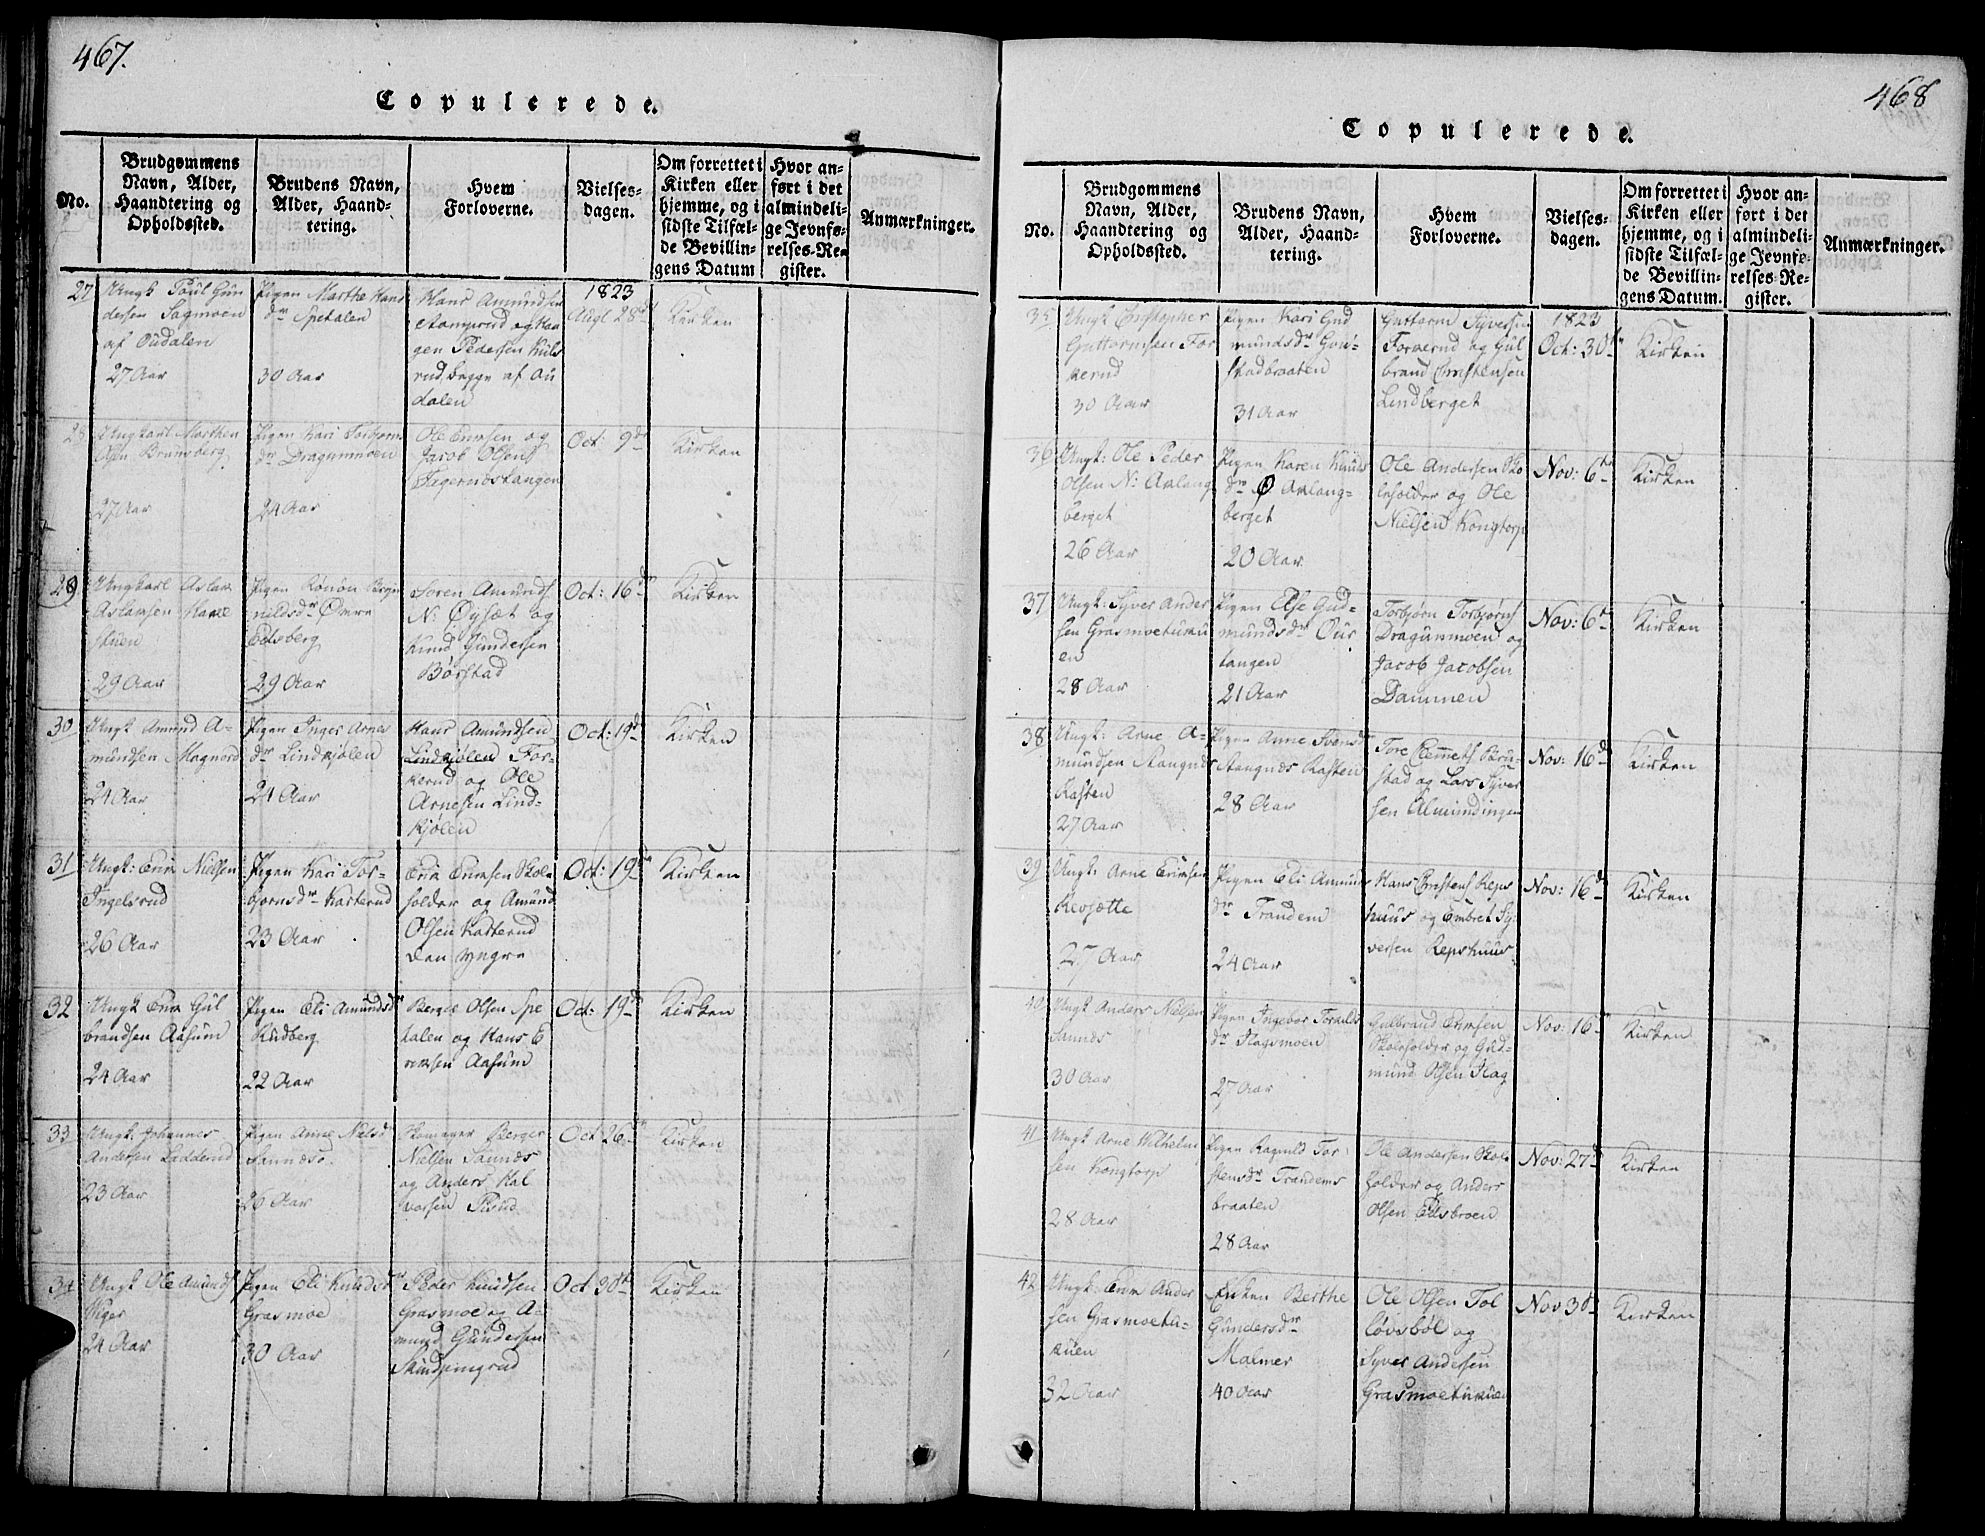 467.
Copulerede.
No.
Brudgommens
Navn, Alder,
Haandtering og
Opholdssted.
Brudens Navn,
Alder, Haand-
tering.
Hvem
Forloverne.
Vielses-
dagen.
Om forrettet i
Kirken eller
hjemme, og i
sidste Tilfæl-
de Bevillin-
gens Datum
Hvor an-
ført i det
almindeli-
ge Jevnfø-
relses-Re-
gister.
Anmærkninger.
27
Ungk Poul Gun
dersen Sagmoen
af Oudalen
27 Aar
Pigen Marthe Hans
dr Spetalen
30 Aar
Hans Amundsen
og Haa
gen Pedersen Kuls
rud begge af Ou
dalen
1823
Augt 28d
Kirken
28
Ungkarl Morthen
Olsen Brunsberg
27 Aar
Pigen Kari Torbjørns
dr Dragunmoen
24 Aar
Ole Ericsen og
Jacob Olsen
Tigernæstangen
Oct: 9de
Kirken
29
Ungkarl Aslak
Aslaksen
stuen
29 Aar
Pigen Rønøv
Øvre
Eidsberg
29 Aar
Søren Amunds
N: Øysæt og
Knud Gundersen
Børstad
Oct: 16de
Kirken
30
Ungk Amund A-
mundsen Magnord
24 Aar
Pigen Inger Arnes
dr Lindkjølen
24 Aar
Hans Amundsen
Lindkjølen For-
kerud og Ole
Arnesen Lind-
kjølen
Oct: 19de
Kirken
31
Ungk: Eric Nielsen
Ingelsrud
26 Aar
Pigen Kari Tor-
bjørnsdr Kasterud
23 Aar
Eric Ericsen Skole
holder og Amund
Olsen Kasterud
den yngre
Oct: 19de
Kirken
32
Ungk Eric Gul
brandsen Aasum
24 Aar
Pigen Eli Amundsdr
Rudberg
22 Aar
Berger Olsen Spe
talen og Hans E
ricsen Aasum
Oct: 19de
Kirken
33
Ungk: Johannes
Andersen Ladderud
23 Aar
Pigen Anne Nielsd
Sannæs
26 Aar
Skomager Berger
Nielsen Sannæs
og Anders Hal
vorsen
Oct 26de
Kirken
34
Ungk Ole Amunds
Viger
24 Aar
Pigen Eli Knudsdr
Grasmoe
30 Aar
Peder Knudsen
Grasmoe og A-
mund Gundersen
Skindpungrud
Oct 30te
Kirken
468
Copulerede.
No.
Brudgommens
Navn, Alder,
Haandtering og
Opholdssted.
Brudens Navn,
Alder, Haand-
tering.
Hvem
Forloverne.
Vielses-
dagen.
Om forrettet i
Kirken eller
hjemme, og i
sidste Tilfæl-
de Bevillin-
gens Datum.
Hvor an-
ført i det
almindeli-
ge Jevnfø-
relses-Re-
gister.
Anmærkninger.
35
Ungk Christopher
Guttormsen For
kerud
30 Aar
Pigen Kari Gud
mundsdr
30 31 Aar
Guttorm Syversen
Forkerud og Gul
brand Christensen
Lindberget
1823
Oct: 30te
Kirken
36
Ungk: Ole Peder
Olsen N: Aklang
berget
26 Aar
Pigen Karen Knuds
dr Ø Aklang-
berget
20 Aar
Ole Andersen Sko
leholder og Ole
Nielsen Kongtorp
Nov: 6te
Kirken
37
Ungk: Syver Ander
sen Grasmoetuku
en
28 Aar
Pigen Else Gud-
mundsdr Our
tangen
21 Aar
Torbjørn Torbjørns
Dragunmoen og
Jacob Jacobsen
Dammen
Nov: 6te
Kirken
38
Ungk: Arne A-
mundsen Stangnæs
Kasten
27 Aar
Pigen Anne Svensd
Stangnæs Kasten
28 Aar
Tore Clemets
stad og Lars Syver
sen Almindingen
Nov: 16de
Kirken
39
Ungk: Arne Ericsen
Revsætte
27 Aar
Pigen Eli Amunds
dr Trandem
24 Aar
Hans Christens Reps
huus og Embret Sy
versen Repshuus
Nov: 16de
Kirken
40
Ungk Anders Nielsen
Sannæs
30 Aar
Pigen Ingebor Torkilds
dr Hagsmoen
27 Aar
Gulbrand Ericsen
Skoleholder og Gud-
mund Olsen Hag
Nov: 16de
Kirken
41
Ungk Arne Vilhelm
sen Kongtorp
28 Aar
Pigen Ragnild Tor
stensdr Trandems
braaten
28 Aar
Ole Andersen Skole
holder og Anders
Olsen Eidsbroen
Nov: 27de
Kirken
42
Ungk: Eric Ander
sen Grasmoetu-
kuen
32 Aar
Enken Berthe
Gundersdr
Malmer
40 Aar
Ole Olsen Tol
løvsbøl og
Syver Andersen
Grasmoetukuen
Nov 30te
Kirken